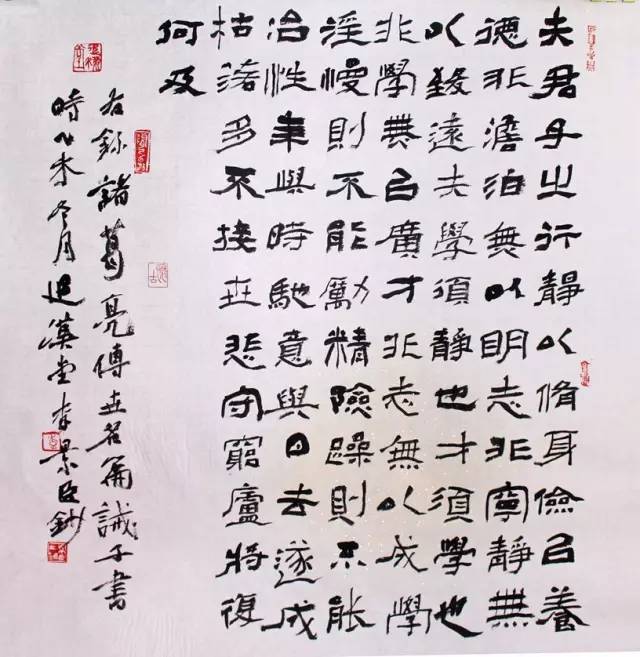 夫君子之行靜以脩身儉以養
德非澹泊無以明志非寧靜無
以致遠夫學須靜也才須學也
非學無以廣才非志無以成學
淫慢則不能勵精險躁則不能
冶性年與時馳意與日去遂成
枯落多不接世悲守窮廬將復
何及
右錄諸葛亮傳世名篇誡子書
時冬月追漢堂李景臣鈔